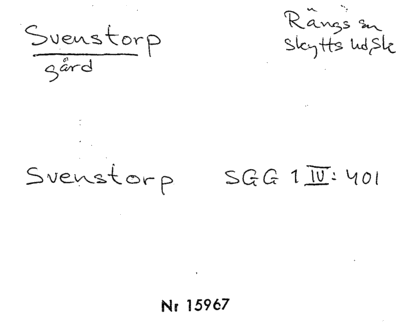 Svenstorp
gård
Rängs sn
Skytts hd, Sk
Svenstorp SGG 1 IV: 401
Nr 15967